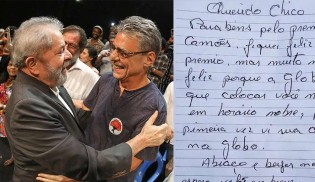 Querido Chico
Parabens pelo premi
Camões, fiquei feliz
premio, mas muito m
feliz porque a Glob
que colocar você n
em horário nobre,
primeira vez vi sua
na Globo.
Abraço e beijos